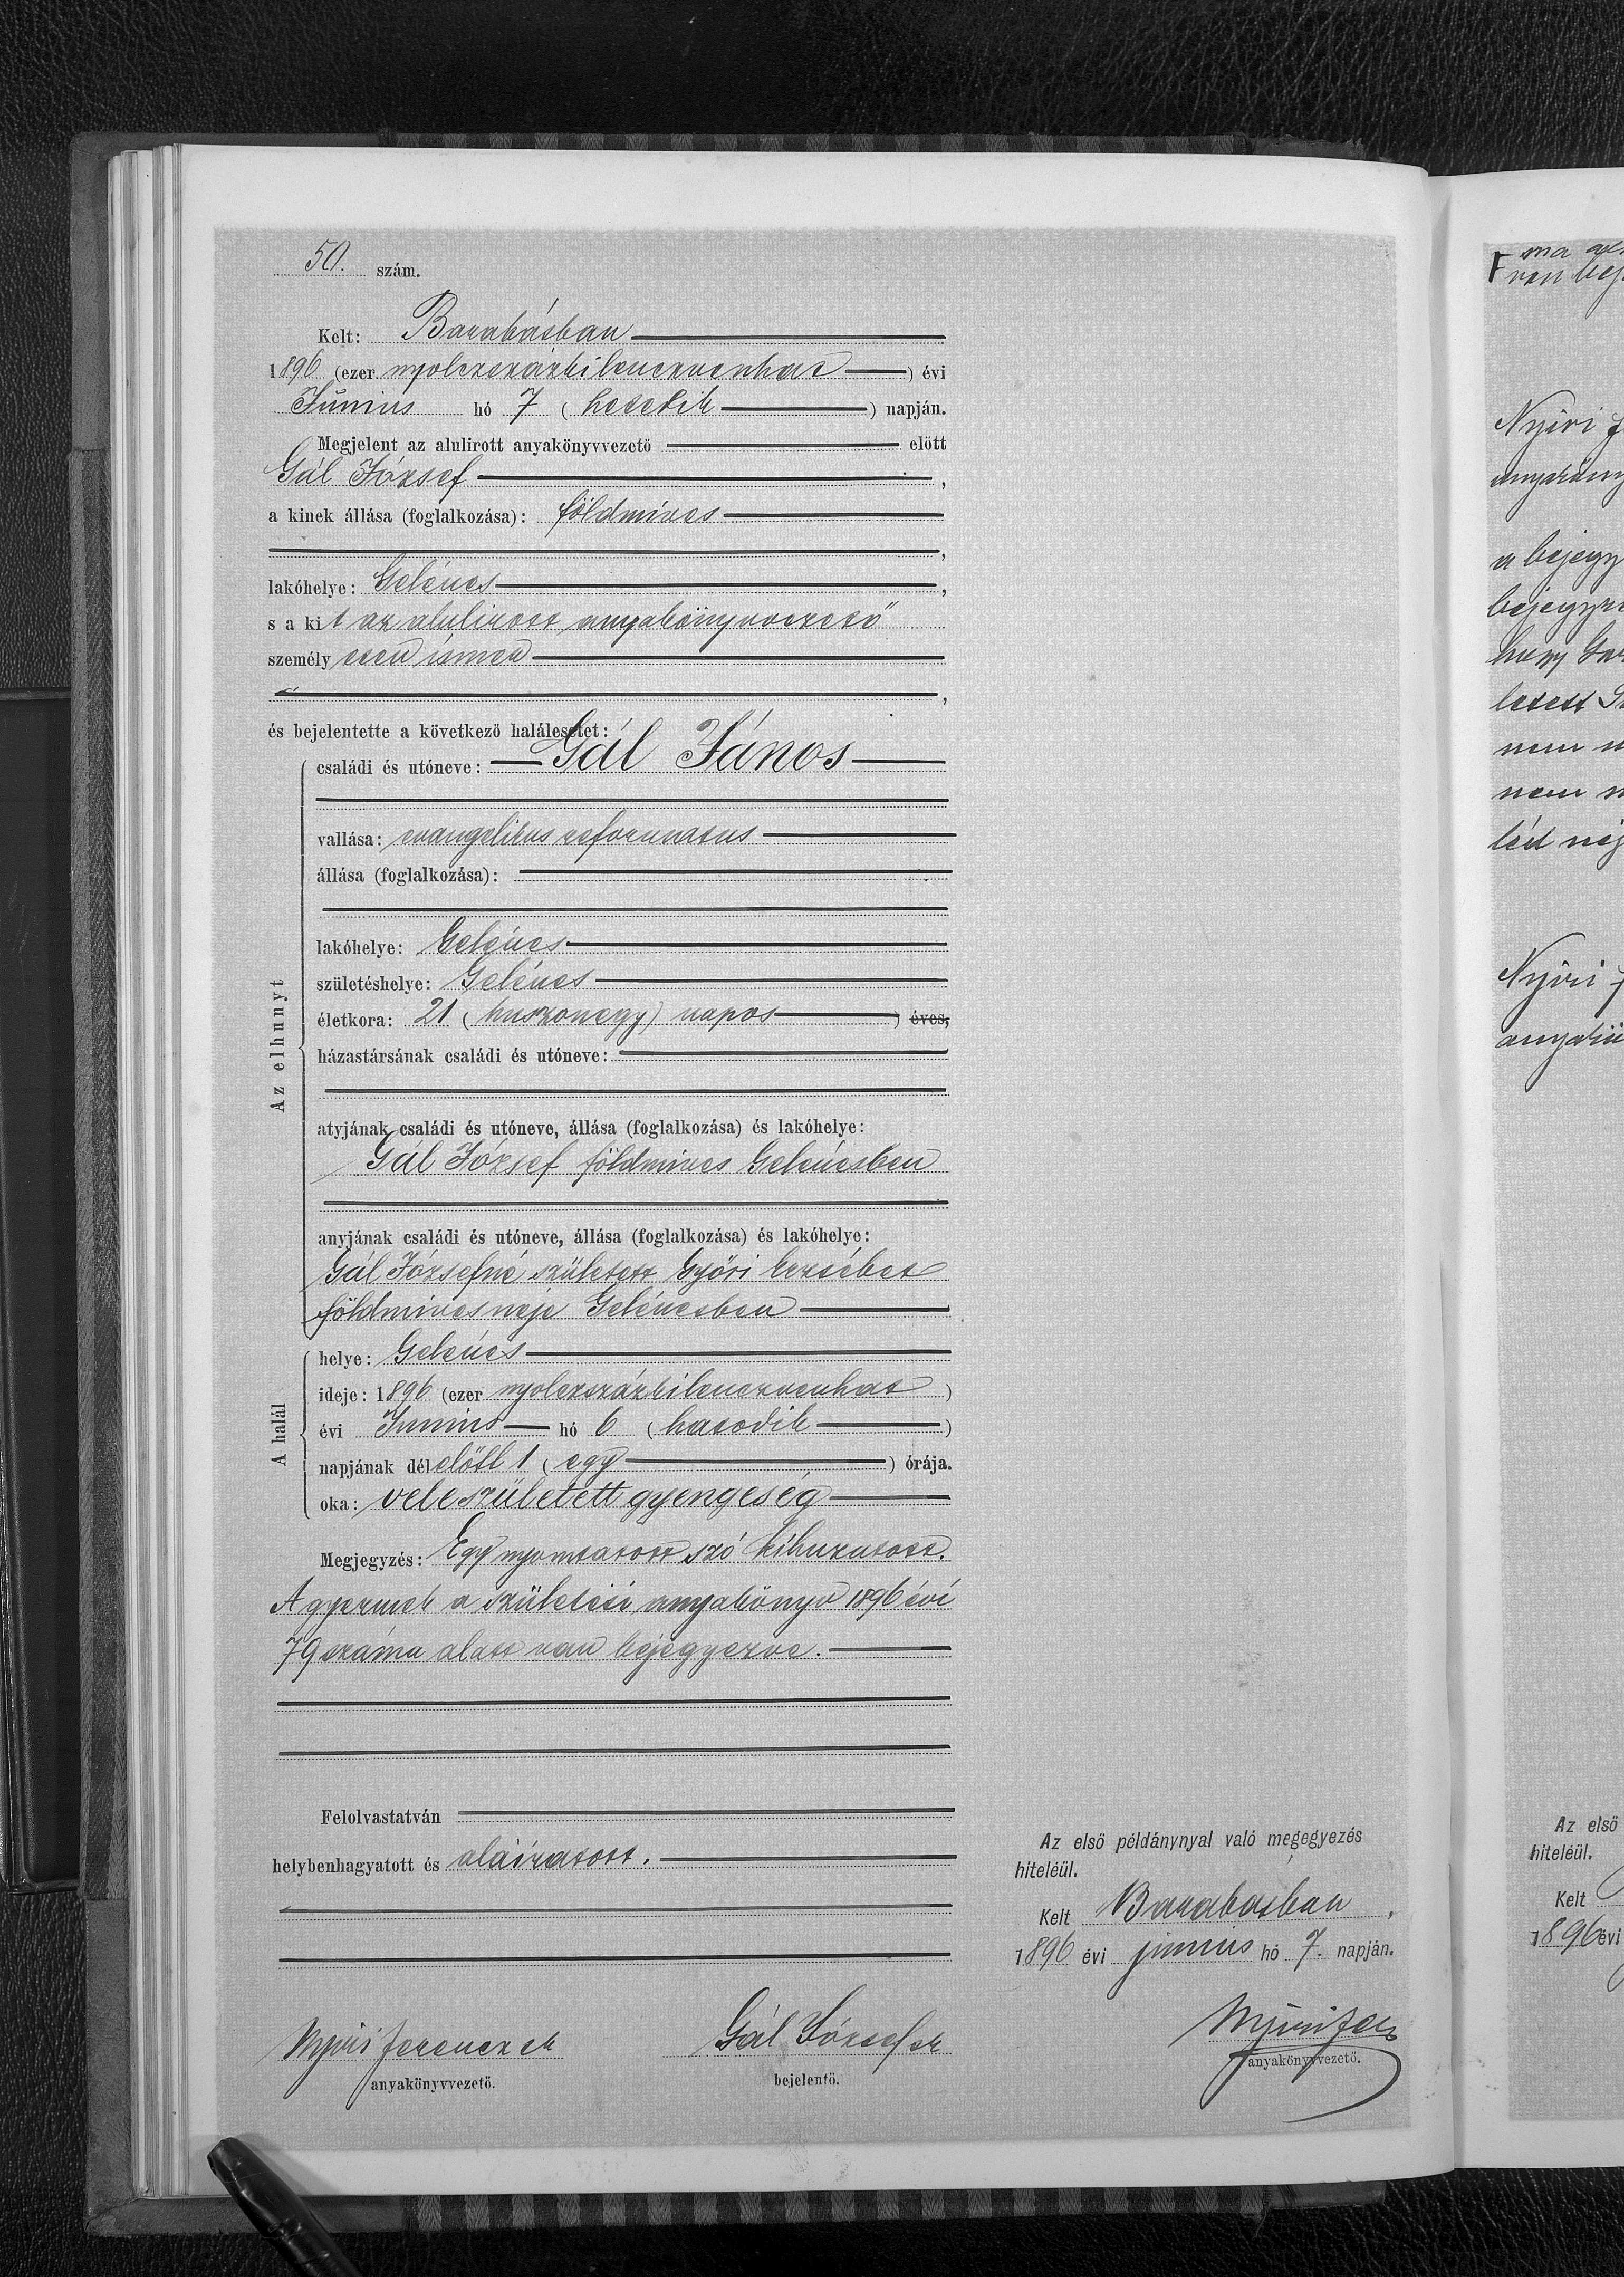 50. szám.
Kelt: Barabásban
1896 (ezer nyolczszázkilenczvenhat) évi
Június hó 7 (hetedik) napján.
Megjelent az alulirott anyakönyvvezető előtt
Gál József,
a kinek állása (foglalkozása): földmíves
,
lakóhelye: Gelénes,
s a kit az alulirott anyakönyvvezető
személyesen ismer
,
és bejelentette a következő halálesetet:
Az elhunyt
családi és utóneve: Gál János
vallása: evangelikus reformatus
állása (foglalkozása):
lakóhelye: Gelénes
születéshelye: Gelénes
életkora: 21 (huszonegy) napos ) éves,
házastársának családi és utóneve:
atyjának családi és utóneve, állása (foglalkozása) és lakóhelye:
Gál József földmíves Gelénesben
anyjának családi és utóneve, állása (foglalkozása) és lakóhelye:
Gál Józsefné született Győri Erzsébet
földmíves neje Gelénesben
A halál
helye: Gelénes
ideje: 1896 (ezer nyolczszázkilenczvenhat)
évi Junius hó 6 (hatodik)
napjának délelőtt 1 (egy) órája.
oka: veleszületett gyengeség
Megjegyzés: Egy nyomtatott szó kihuzatott.
A gyermek a születési anyakönyv 1896 évi
79 száma alatt van bejegyezve.
Felolvastatván
helybenhagyatott és aláiratott.
Nyiri Ferencz sk
anyakönyvvezető.
Gál József sk
bejelentő.
Az első példánynyal való megegyezés
hiteléül.
Kelt Barabásban,
1896 évi junius hó 7. napján.
Nyiri Fer
anyakönyvvezető.
ma al
van bej
Nyiri F
a bejegy
bejegyz
hogy
nem
nem
Nyiri F
Az első
hiteléül.
Kelt
1896 évi